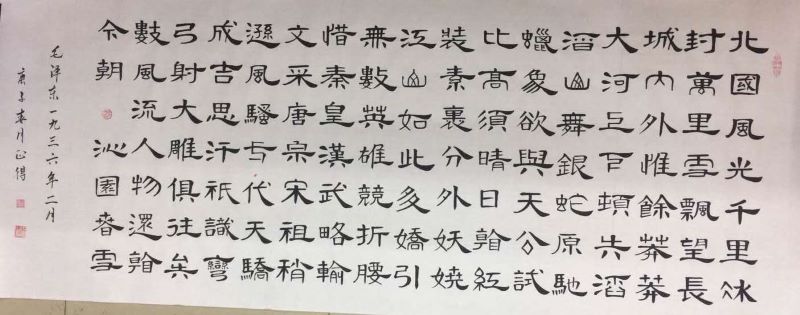 北國風光千里冰
封萬里雪飄望長
城内外惟餘莽莽
大河上下頓失滔
滔山舞銀蛇原馳
蠟象欲與天公試
比高須晴日看紅
裝素裹分外妖嬈
江山如此多嬌引
無數英雄競折腰
惜秦皇漢武略輸
文采唐宗宋祖稍
遜風騷一代天驕
成吉思汗祇識彎
弓射大雕俱往矣
數風流人物還看
今朝 沁園春雪
毛泽东一九三六年二月
庚子春月正得